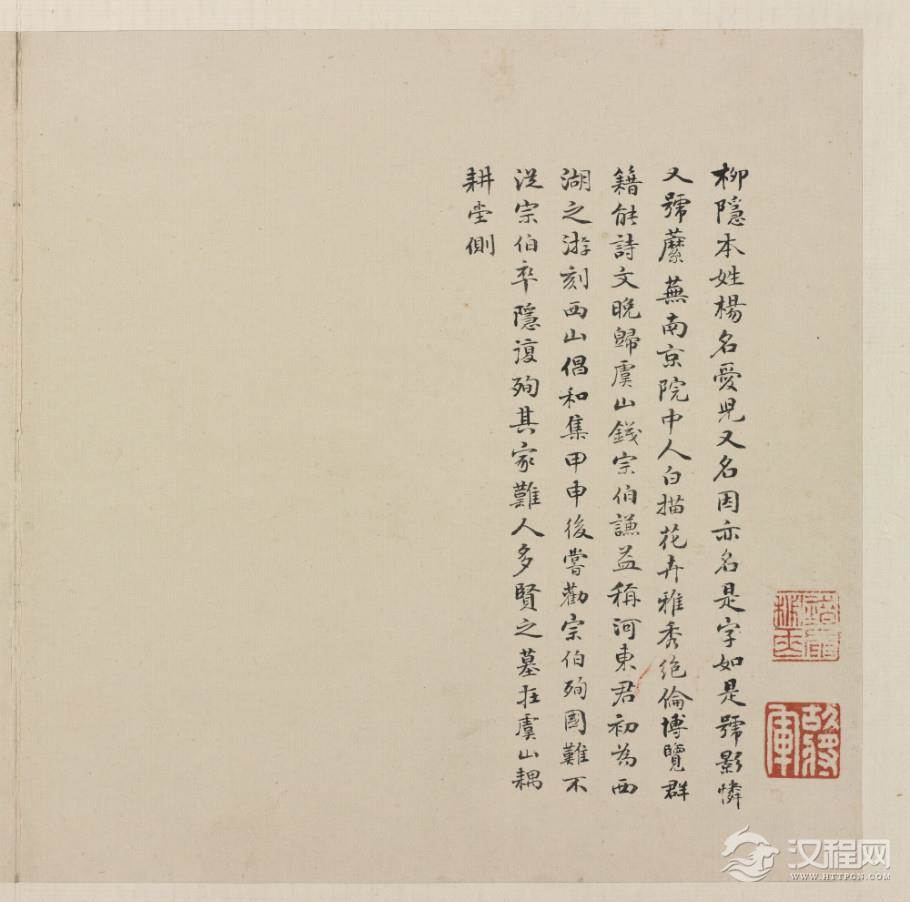 柳隱本姓楊名愛児又名因亦名是字如是號影憐
又號蘼蕪南京院中人白描花卉雅秀絶倫博覽群
籍能詩文晚歸虞山錢宗伯謙益稱河東君初為西
湖之游刻西山倡和集甲申後嘗勸宗伯殉國難不
從宗伯卒隱復殉其家難人多賢之墓在虞山耦
耕坣側
故將軍
汉程网
WWW.HTTPCN.COM